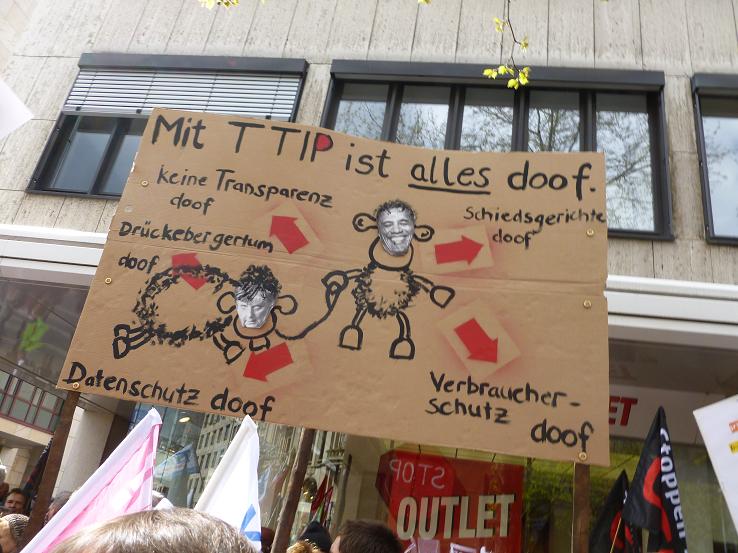 Mit TTIP ist alles doof.
keine Transparenz
doof
Schiedsgerichte
doof
Drückebergertum
doof
Datenschutz doof
Verbraucher-
schutz
doof
STOP
OUTLET
ET
stoppen